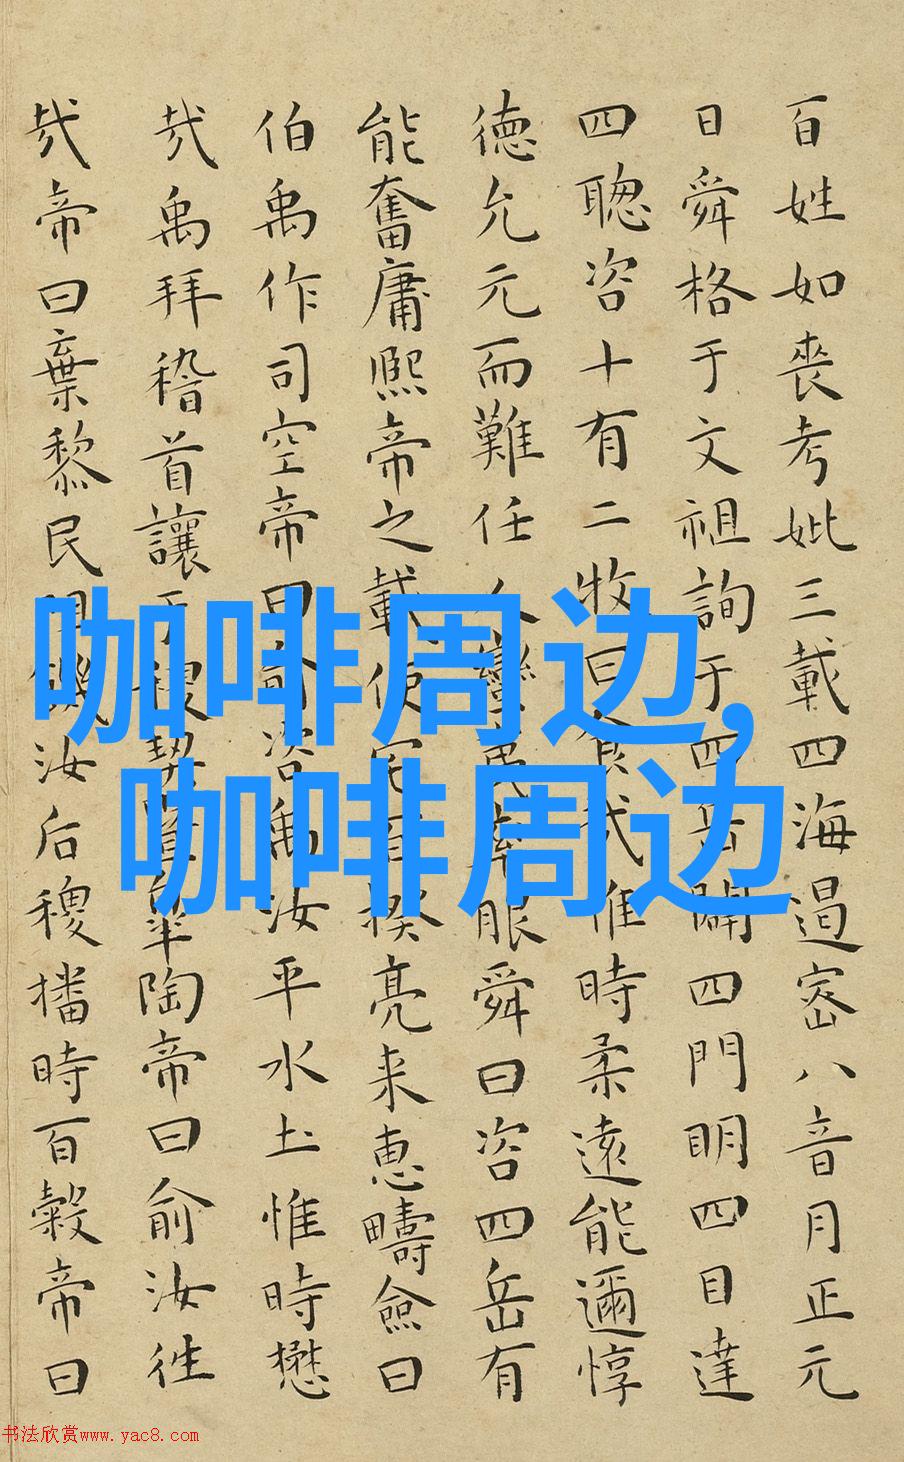 百姓如喪考妣三載四海遏密八音月正元
日舜格于文祖詢于四岳闢四門明四目達
四聰咨十有二牧曰食哉惟時柔遠能邇惇
德允元而難任人蠻夷率服舜曰咨四岳有
能奮庸熙帝之載使宅百揆亮来惠疇僉曰
伯禹作司空帝曰俞咨禹汝平水土惟時懋
哉禹拜稽首讓于稷契暨皋陶帝曰俞汝往
哉帝曰棄黎民阻饑汝后稷播時百穀帝曰
咖啡周边,
咖啡周边
书法欣赏www.yac8.com